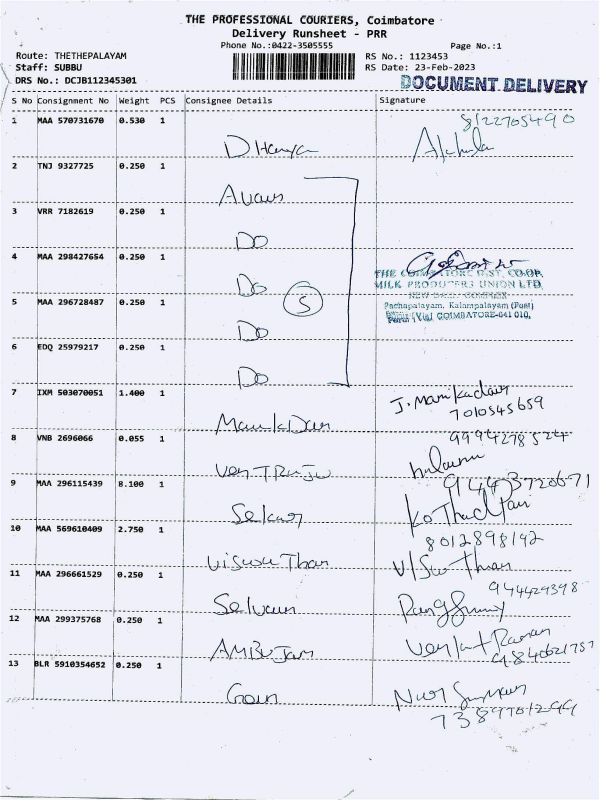 THE PROFESSIONAL COURIERS, Coimbatore
Delivery Runsheet - PRR
Phone No.:0422-3505555
Page No.:1
Route: THETHEPALAYAM
RS No.: 1123453
Staff: SUBBU
RS Date: 23-Feb-2023
DRS No.: DCJB112345301
DOCUMENT DELIVERY
S No Consignment No Weight PCS Consignee Details Signature
1 MAA 570731670 0.530 1
8122705490
Dhanya
2 TNJ 9327725 0.250 1
3 VRR 7182619 0.250 1
Do
4 MAA 298427654 0.250 1
THE COIMBATORE DIST. CO-OP.
Do
MILK PRODUCERS UNION LTD
5 MAA 296728487 0.250 1
5
Pachapalayam, Kalampalayam (Post)
(Via) COIMBATORE-641 010.
Do
6 EDQ 25979217 0.250 1
Do
7 IXM 503070051 1.400 1
J. Manikadan
7010545659
8 VNB 2696066 0.055 1
9994278524
9 MAA 296115439 8.100 1
Sekar
10 MAA 569610409 2.750 1
8012898192
Viswa Than
11 MAA 296661529 0.250 1
944429398
12 MAA 299375768 0.250 1
Ambujam
Venkat Raman
9840621757
13 BLR 5910354652 0.250 1